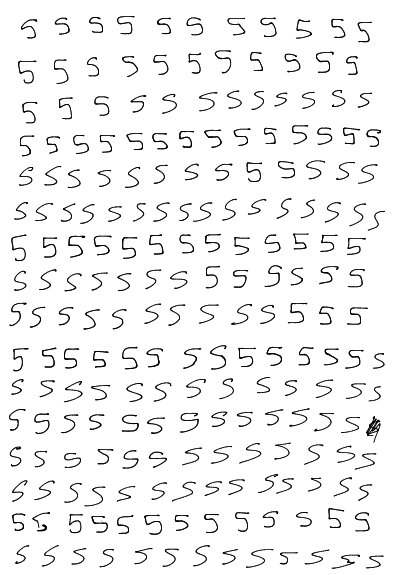 5 5 5 5 5 5 5 5 5 5 5
5 5 5 5 5 5 5 5 5 5 5
5 5 5 5 5 5 5 5 5 5 5 5
5 5 5 5 5 5 5 5 5 5 5 5 5 5
5 5 5 5 5 5 5 5 5 5 5 5 5
5 5 5 5 5 5 5 5 5 5 5 5 5 5 5 5
5 5 5 5 5 5 5 5 5 5 5 5 5
5 5 5 5 5 5 5 5 5 5 5 5 5
5 5 5 5 5 5 5 5 5 5 5 5 5
5 5 5 5 5 5 5 5 5 5 5 5 5 5
5 5 5 5 5 5 5 5 5 5 5 5 5
5 5 5 5 5 5 5 5 5 5 5 5 5
5 5 5 5 5 5 5 5 5 5 5 5 5
5 5 5 5 5 5 5 5 5 5 5 5 5 5
5 5 5 5 5 5 5 5 5 5 5 5 5
5 5 5 5 5 5 5 5 5 5 5 5 5